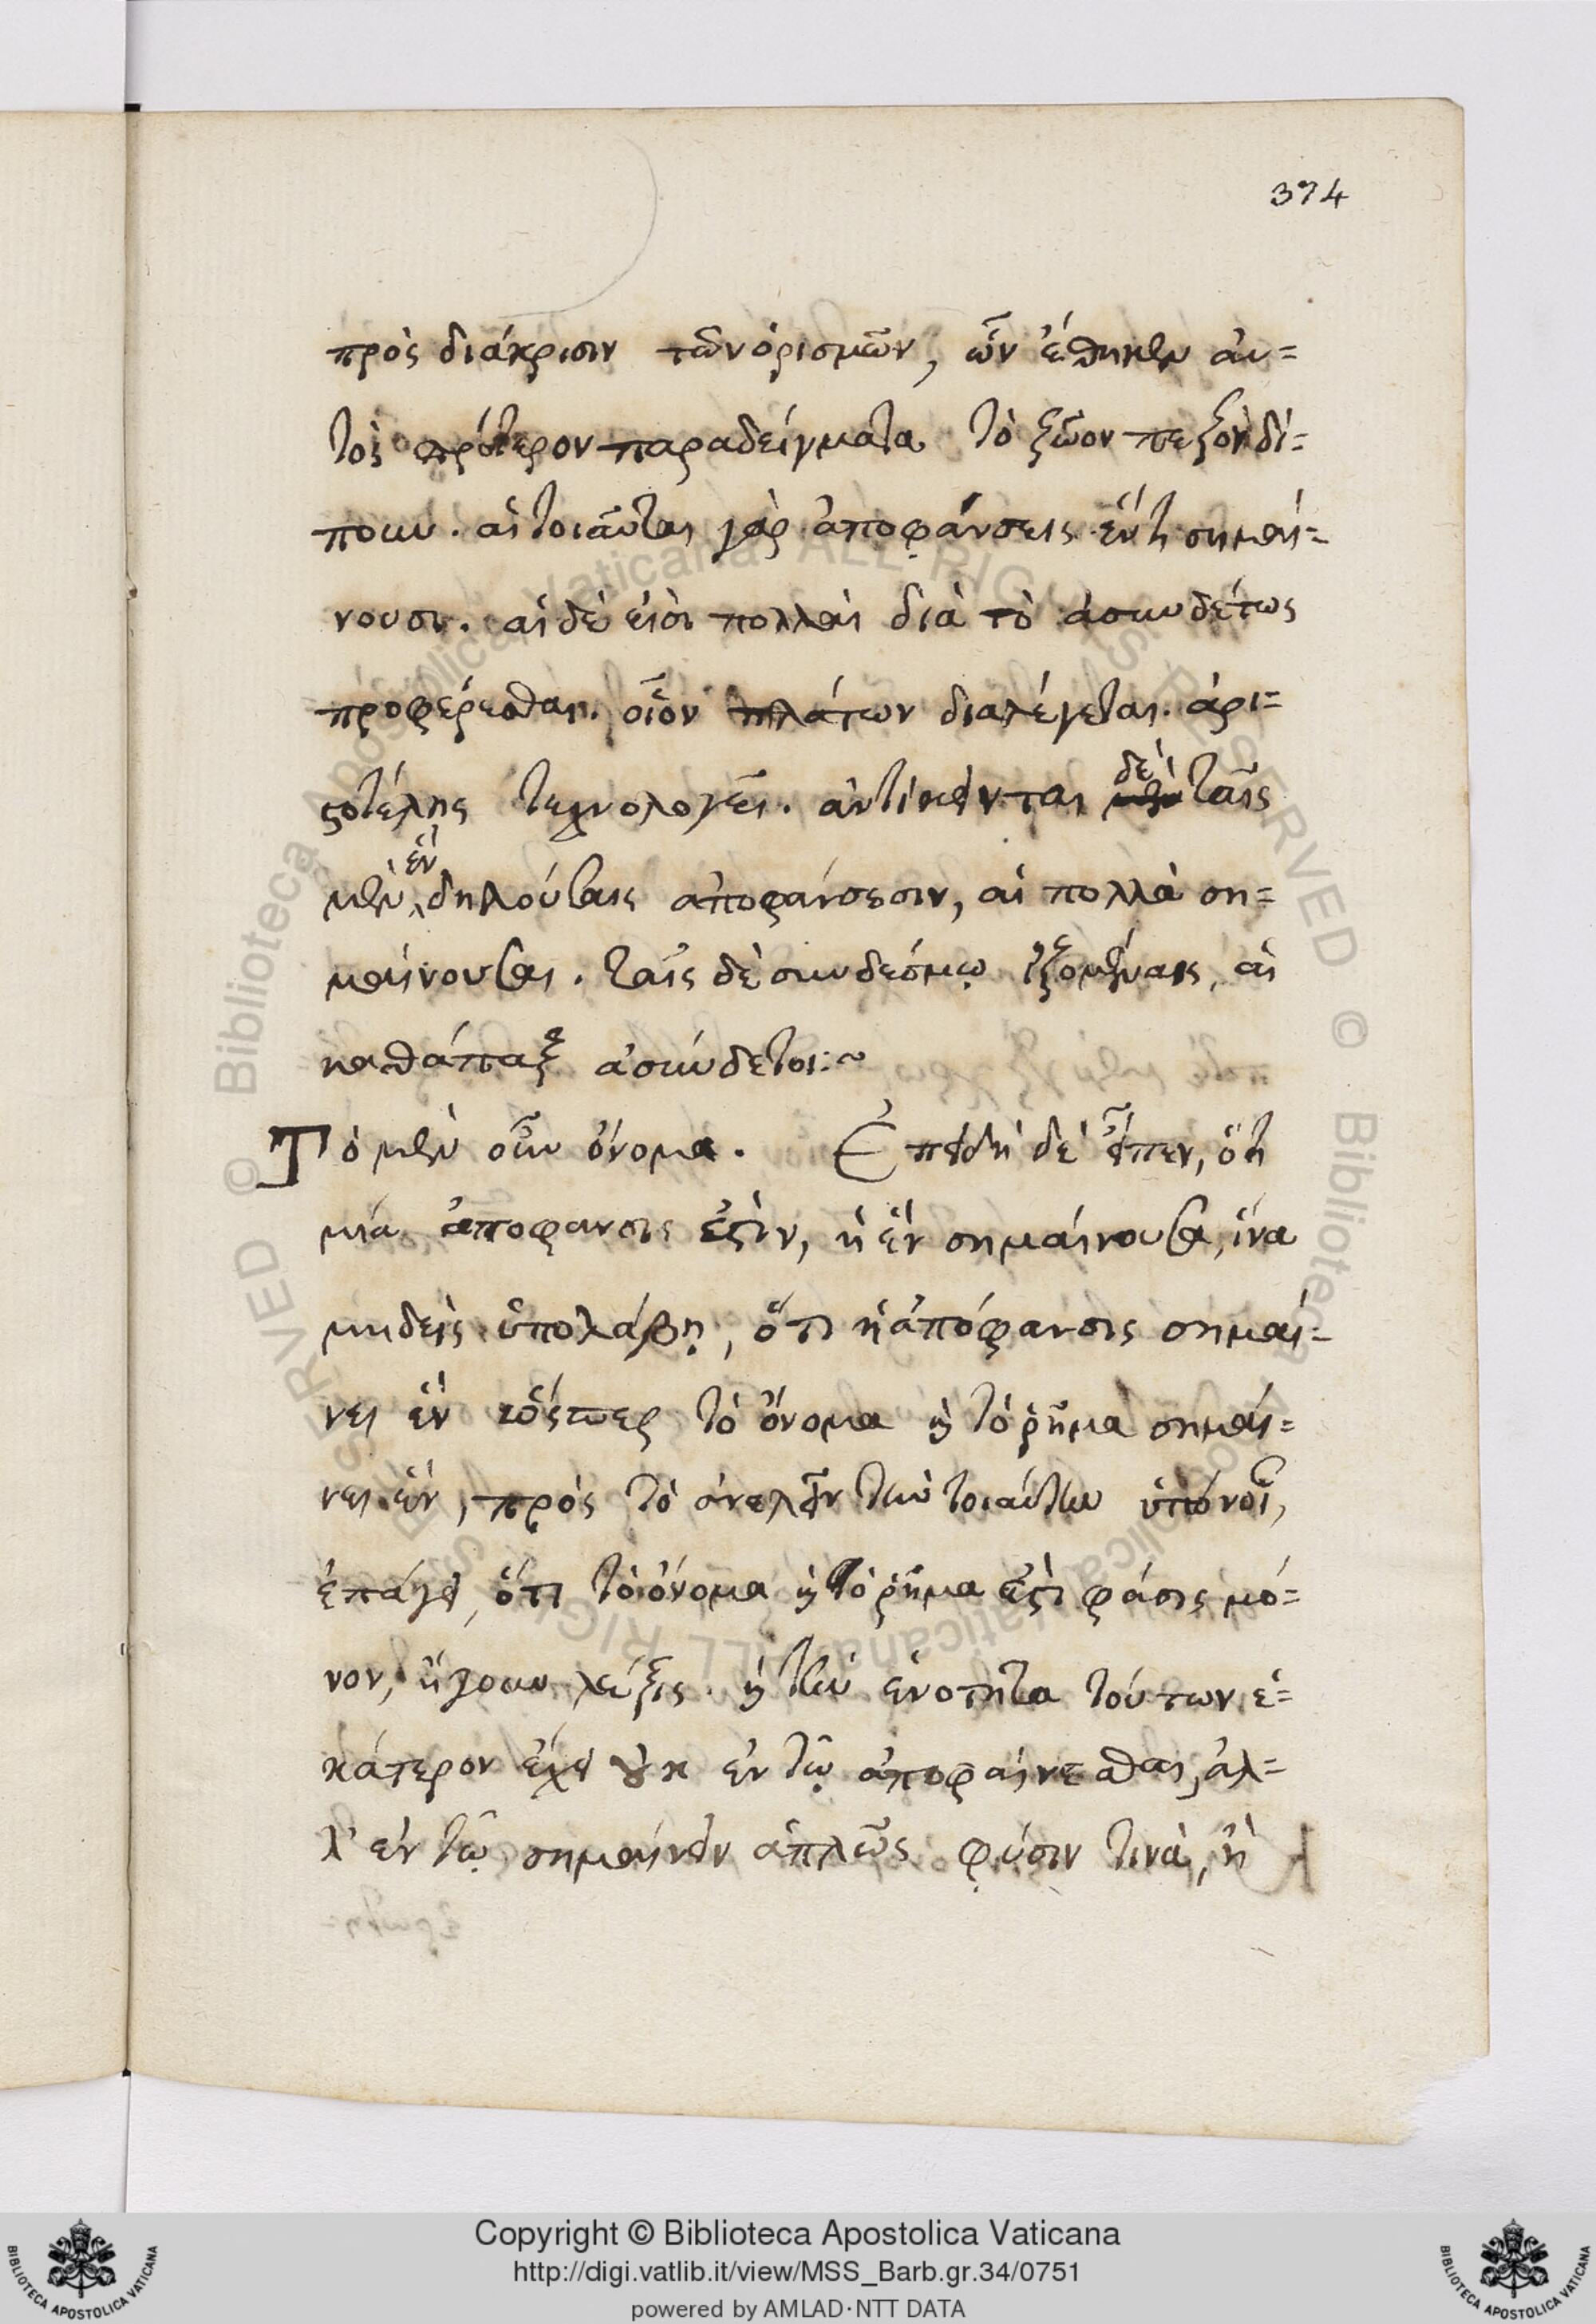 374
πρὸς διάκρισιν τῶν ὁρισμῶν, ὧν ἔθηκεν αὐ=
τὸς πρότερον παραδείγματα τὸ ζῶον πεζὸν δί=
πουν. αἱ τοιαῦται γὰρ ἀποφάνσεις ἕν τι σημαί=
νουσι. αἱ δέ εἰσι πολλαὶ διὰ τὸ ἀσυνδέτως
προφέρεσθαι. οἷον πλάτων διαλέγεται. ἀρι=
στοτέλης τεχνολογεῖ. ἀντίκεινται δὲ ταῖς
μὲν ἓν δηλούσαις ἀποφάνσεσιν, αἱ πολλὰ ση=
μαίνουσαι. ταῖς δὲ συνδέσμῳ ἑξομέναις, αἱ
καθάπαξ ἀσύνδετοι:~
Τὸ μὲν οὖν ὄνομα. Ἐπειδὴ δὲ εἶπεν, ὅτι
μία ἀπόφανσις ἐστὶν, ἡ ἓν σημαίνουσα, ἵνα
μηδεὶς ὑπολάβῃ, ὅτι ἡ ἀπόφανσις σημαί=
νει ἓν ὥσπερ τὸ ὄνομα ἢ τὸ ῥῆμα σημαί=
νει ἓν, πρὸς τὸ ἀνελεῖν τὴν τοιαύτην ὑπόνοιαν,
ἐπάγει, ὅτι τὸ ὄνομα ἢ τὸ ῥῆμα ἐστὶ φάσις μό=
νον, ἤγουν λέξις. καὶ τὴν ἑνότητα τούτων ἑ=
κάτερον ἔχει οὐκ ἐν τῷ ἀποφαίνεσθαι, ἀλ=
λ' ἐν τῷ σημαίνειν ἁπλῶς φύσιν τινὰ, ἢ
Copyright © Biblioteca Apostolica Vaticana
http://digi.vatlib.it/view/MSS_Barb.gr.34/0751
powered by AMLAD·NTT DATA